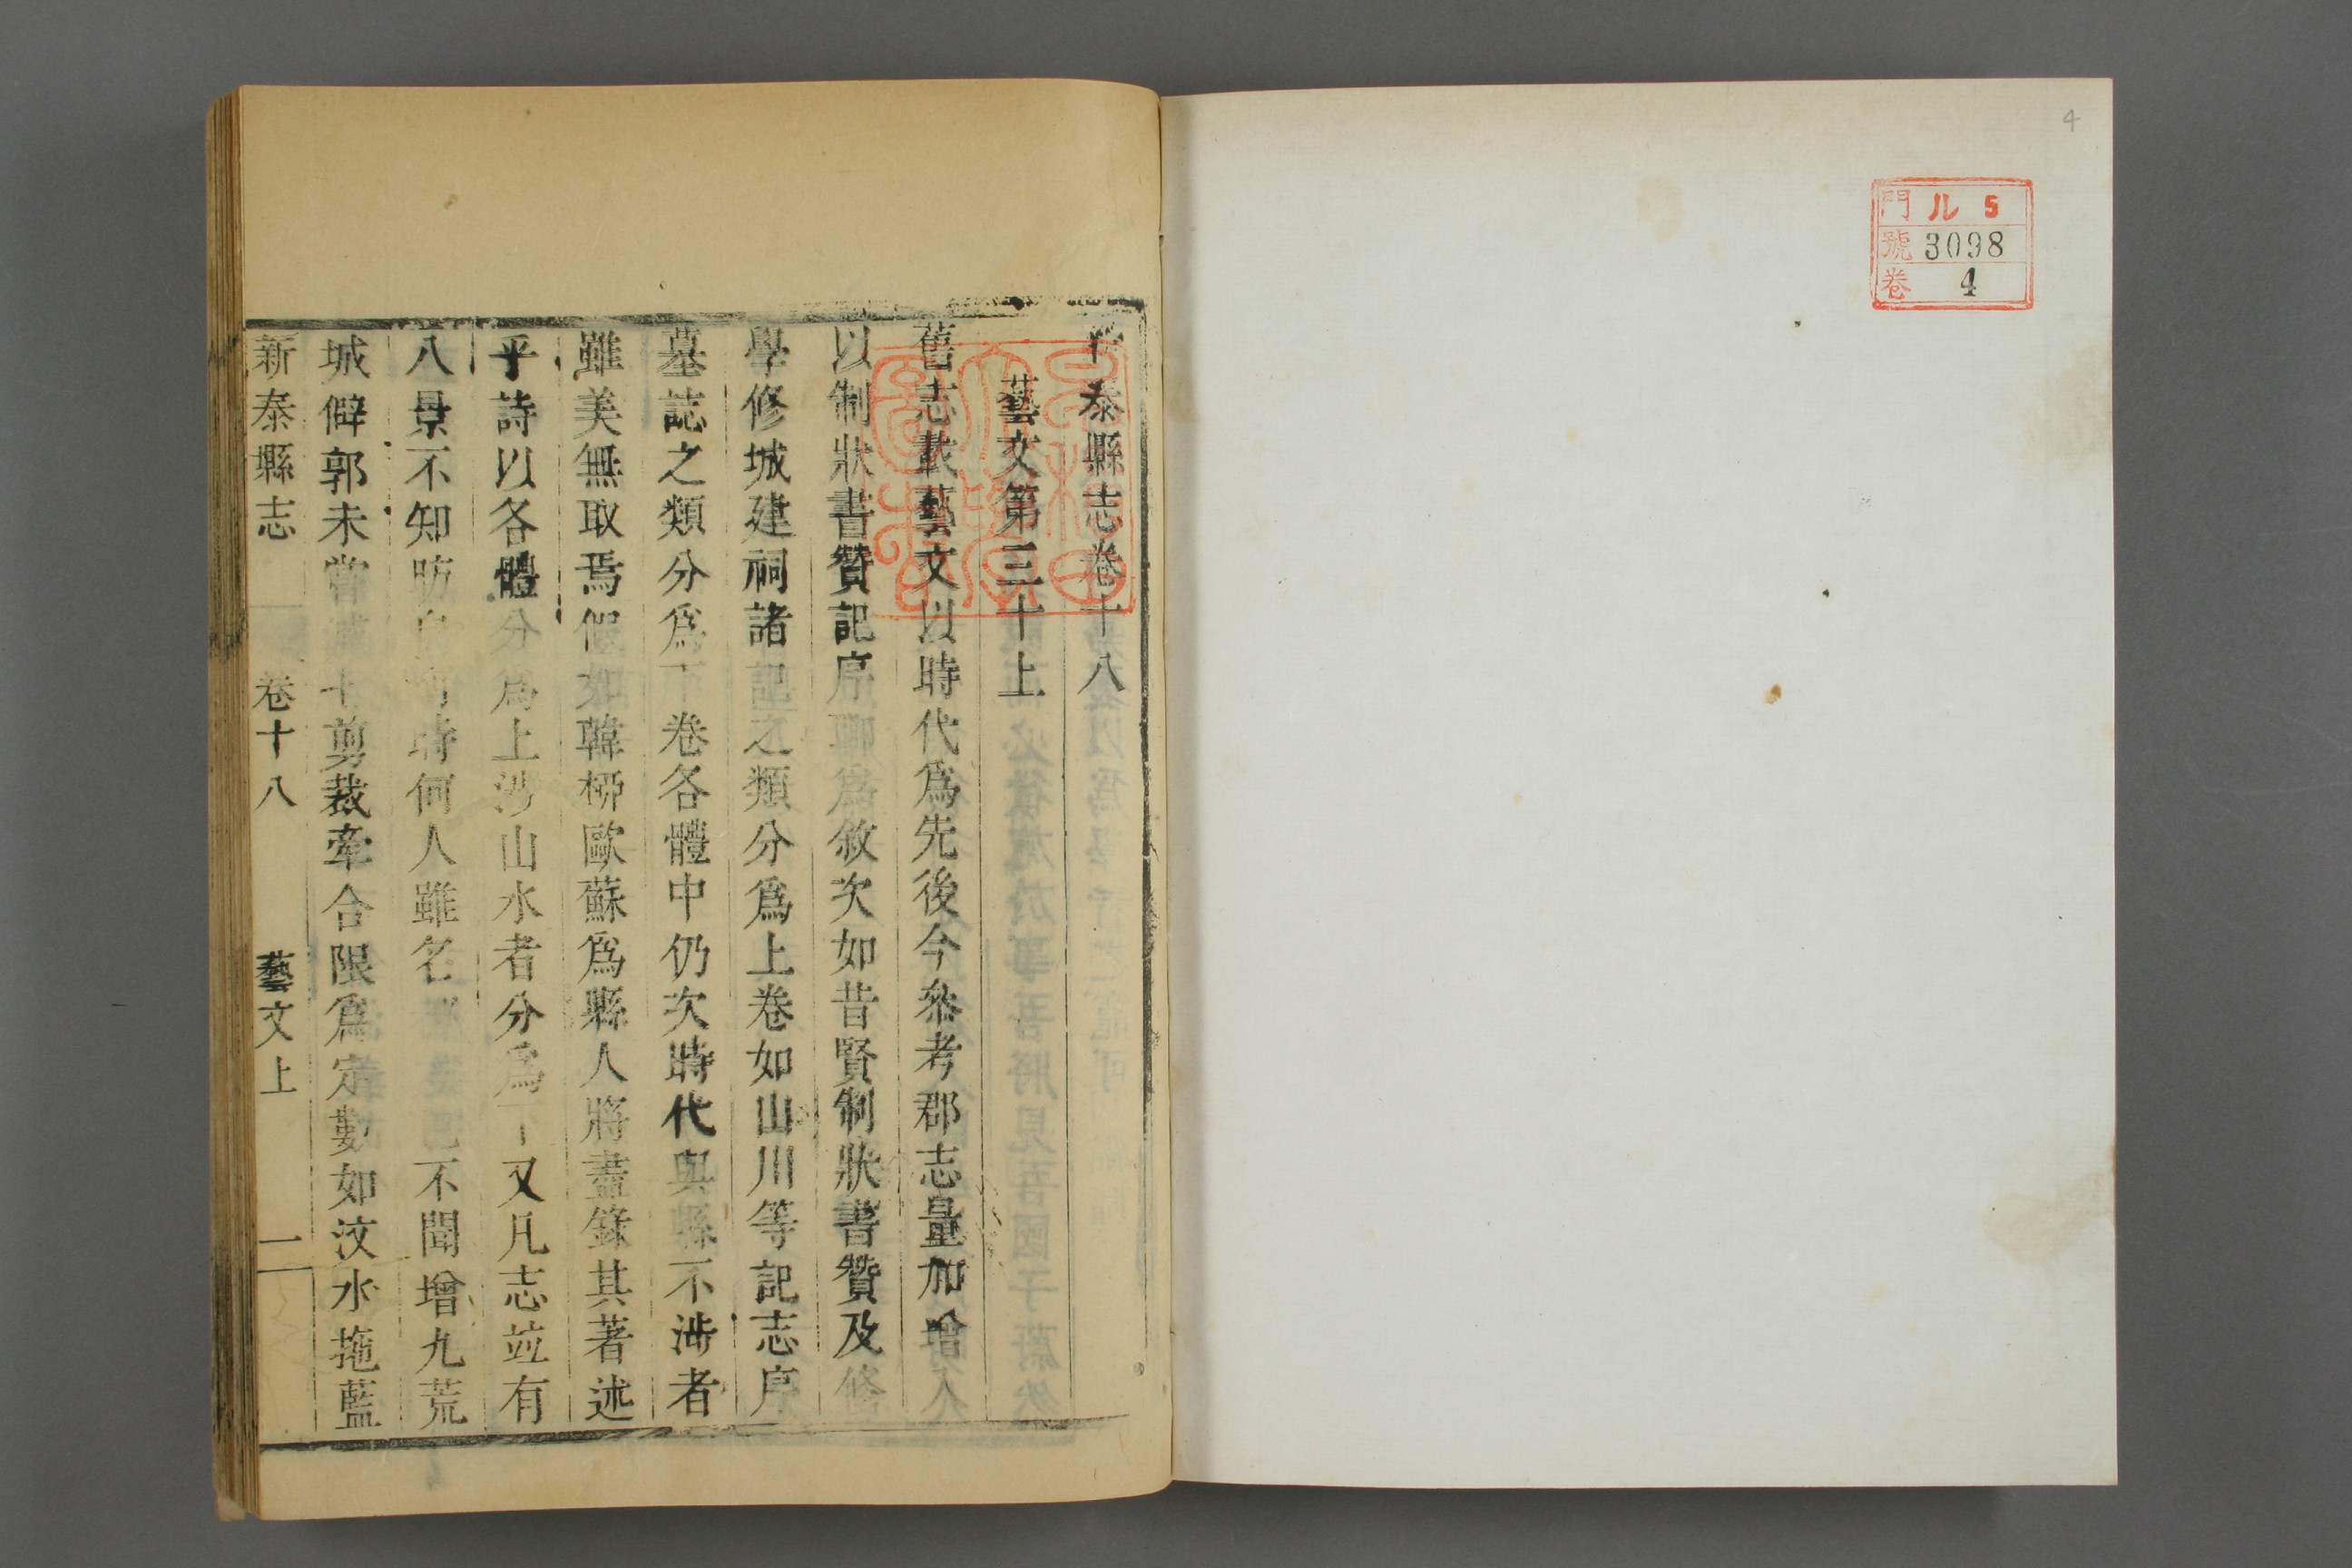 4
門 ル 5
號 3098
卷 4
泰縣志卷十八
藝文第三十上
舊志載藝文以時代爲先後今叅考郡志量加增入
以制狀書贊記序聊爲敘次如昔賢制狀書贊及修
學修城建祠諸記之類分爲上卷如山川等記志序
墓誌之類分爲下卷各體中仍次時代與縣不涉者
雖美無取焉假如韓栁歐蘇爲縣人將盡錄其著述
乎詩以各體分爲上涉山水者分爲下又凡志竝有
八景不知昉自何時何人雖名不聞增九荒
城僻郭未嘗減七剪裁牽合限爲定數如汶水拖藍
新泰縣志 卷十八 藝文上 一